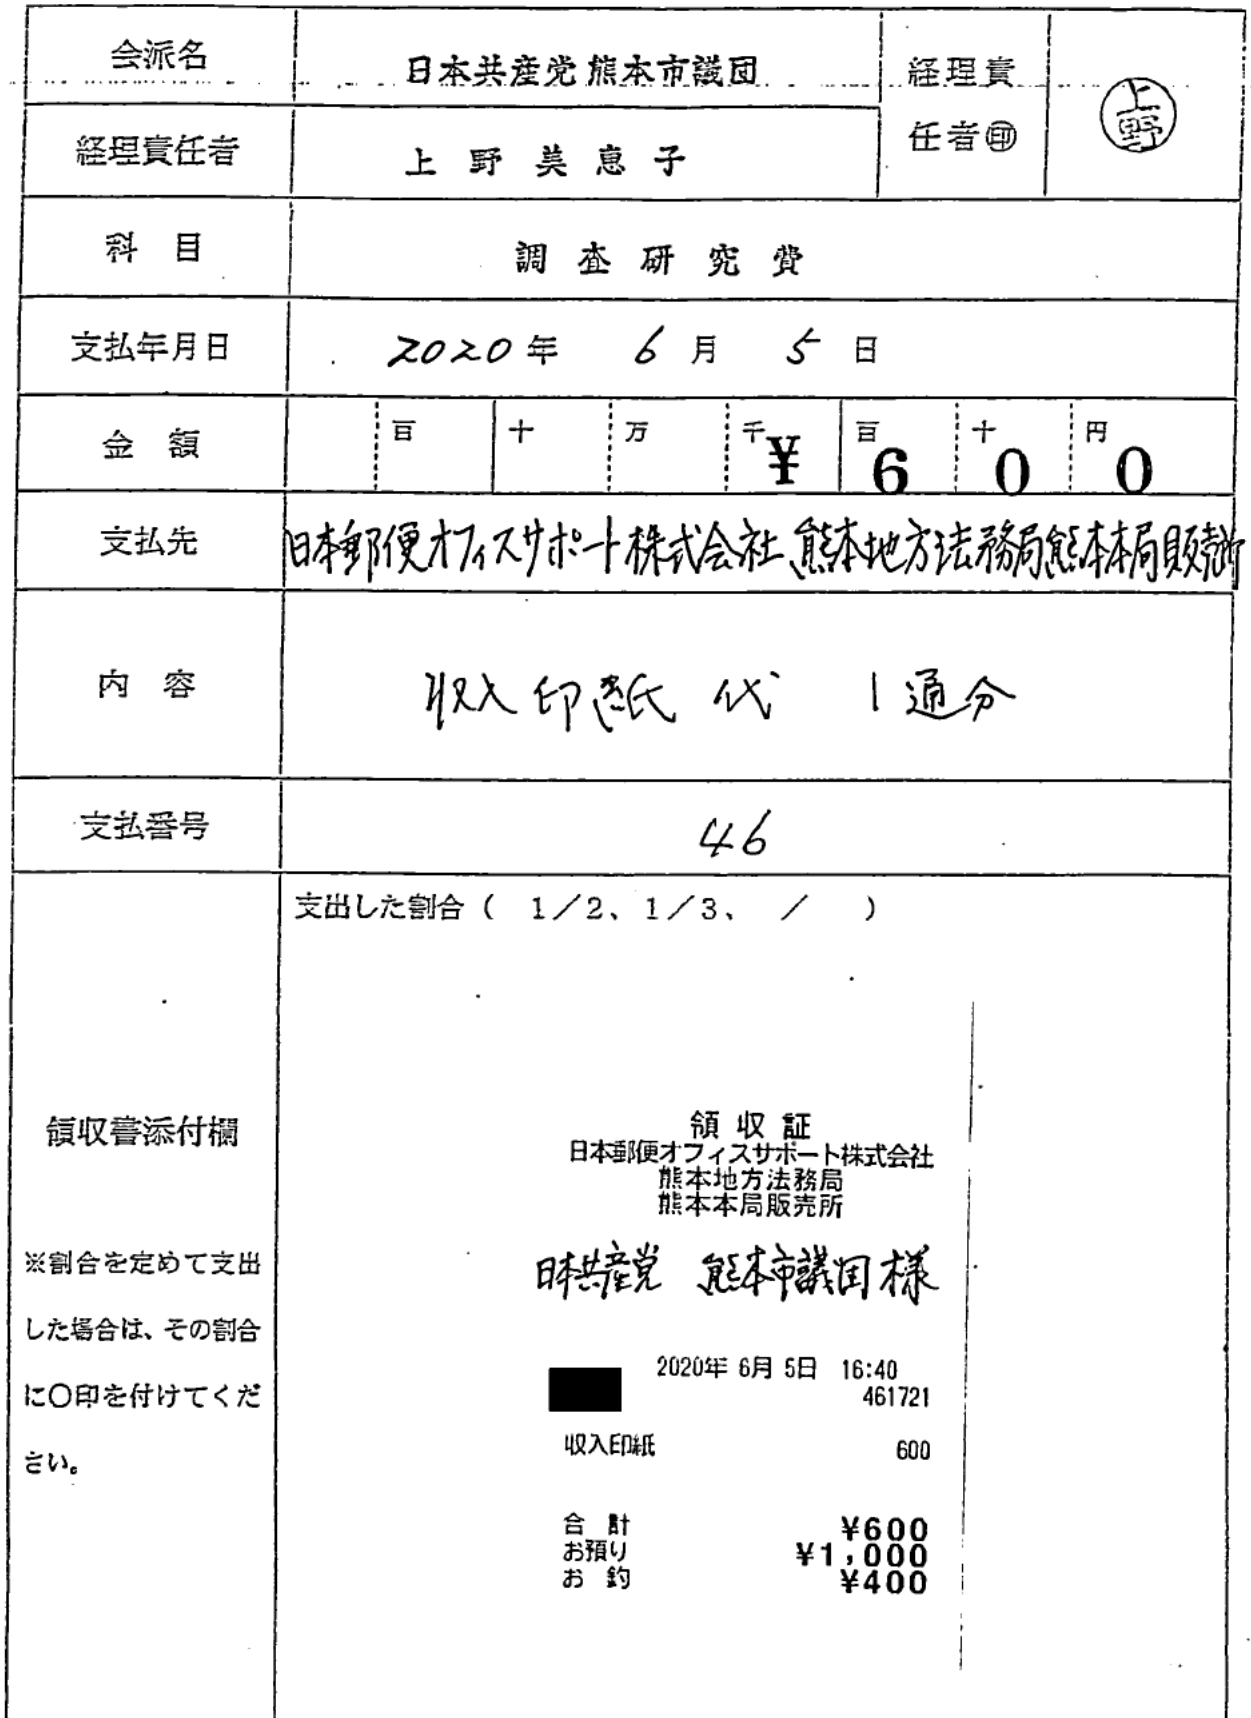 会派名 日本共産党熊本市議団 経理責任者㊞ 上野
経理責任者 上野美恵子
科目 調査研究費
支払年月日 2020年 6月 5日
金額 百 十 万 千¥ 百6 十0 円0
支払先 日本郵便オフィスサポート株式会社、熊本地方法務局熊本本局販売所
内容 収入印紙代 1通分
支払番号 46
支出した割合( 1/2、1/3、 / )
領収書添付欄
※割合を定めて支出
した場合は、その割合
に〇印を付けてくだ
さい。
領収証
日本郵便オフィスサポート株式会社
熊本地方法務局
熊本本局販売所
日本共産党 熊本市議団様
2020年 6月 5日 16:40
461721
収入印紙 600
合計 ¥600
お預り ¥1,000
お釣 ¥400